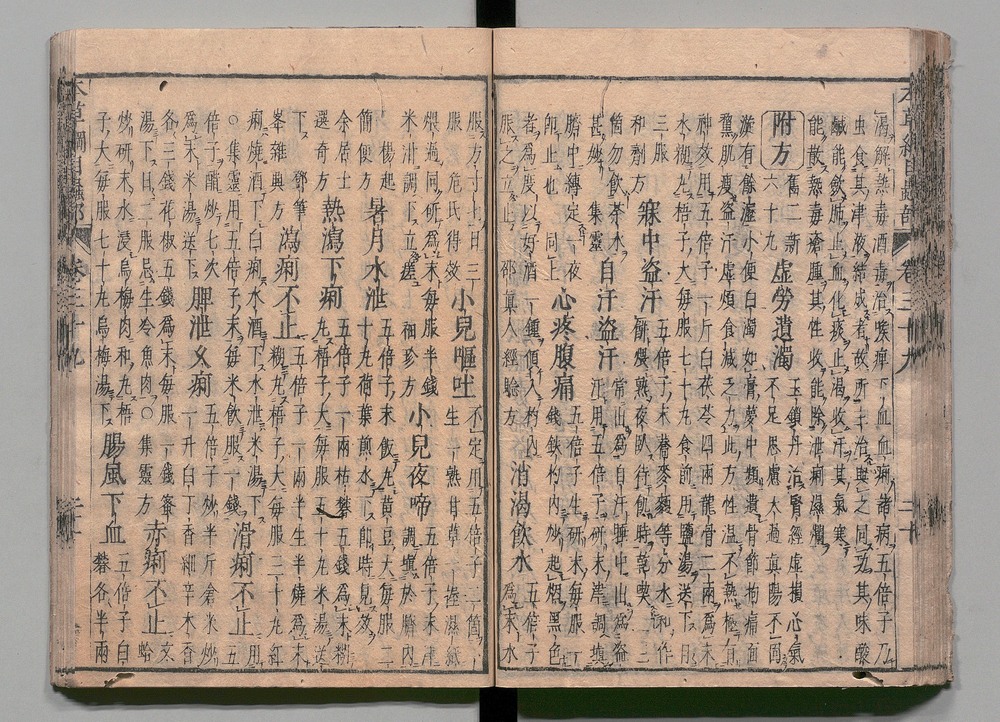 本草綱目蟲部 卷三十九 二十
渴解熱毒酒毒治喉痺下血血痢諸病五倍子乃
虫食其津液結成者故所主治與之同功其味酸
鹹能斂肺止血化痰止渴收汗其氣寒
能散熱毒瘡腫其性收能除泄痢濕爛
附方 舊二新六十九 虛勞遺濁 玉鎖丹治腎經虛損心氣不足思慮太過眞陽不固
漩有餘瀝小便白濁如膏夢中頻遺骨節拘痛面
黧肌瘦盜汗虛煩食減乏力此方性溫不熱極有
神效用五倍子一斤白茯苓四兩龍骨二兩爲末
水糊丸梧子大每服七十丸食前用鹽湯送下日
三服 和劑方 寐中盜汗 五倍子末蕎麥麪等分水和作餅煨熟夜臥待飢時乾喫二三
箇勿飲茶水甚妙 集靈 自汗盜汗 常出爲自汗睡中出爲盜汗用五倍子研末津調填
臍中縛定一夜即止也 同上 心疼腹痛 五倍子生研末每服一錢鐵杓內炒起烟黑色
者爲度以好酒一鍾傾入杓內服之立止 邵眞人經驗方 消渴飲水 五倍子爲末水
服方寸匕日三服 危氏得效 小兒嘔吐 不定用五倍子二箇一生一熟甘草一握濕紙
煨過同研爲末每服半錢米泔調下立瘥 袖珍方 小兒夜啼 五倍子末津調填於臍內
楊起簡便方 暑月水泄 五倍子末飯丸黃豆大每服二十丸荷葉煎水下即時見效
余居士選奇方 熱瀉下痢 五倍子一兩枯礬五錢爲末糊丸梧子大每服五十丸米湯送
下 鄧筆峯雜興方 瀉痢不止 五倍子一兩半生半燒爲末糊丸梧子大每服三十丸紅
痢燒酒下白痢水酒下水泄米湯下○集靈用五倍子末每米飲服一錢 滑痢不止 五
倍子醋炒七次爲末米湯送下 脾泄久痢 五倍子炒半斤倉米炒一升白丁香細辛木香
各三錢花椒五錢爲末每服一錢蜜湯下日二服忌生冷魚肉○集靈方 赤痢不止 文蛤
炒研末水浸烏梅肉和丸梧子大每服七十丸烏梅湯下 腸風下血 五倍子白礬各半兩
本草綱目蟲部 卷三十九